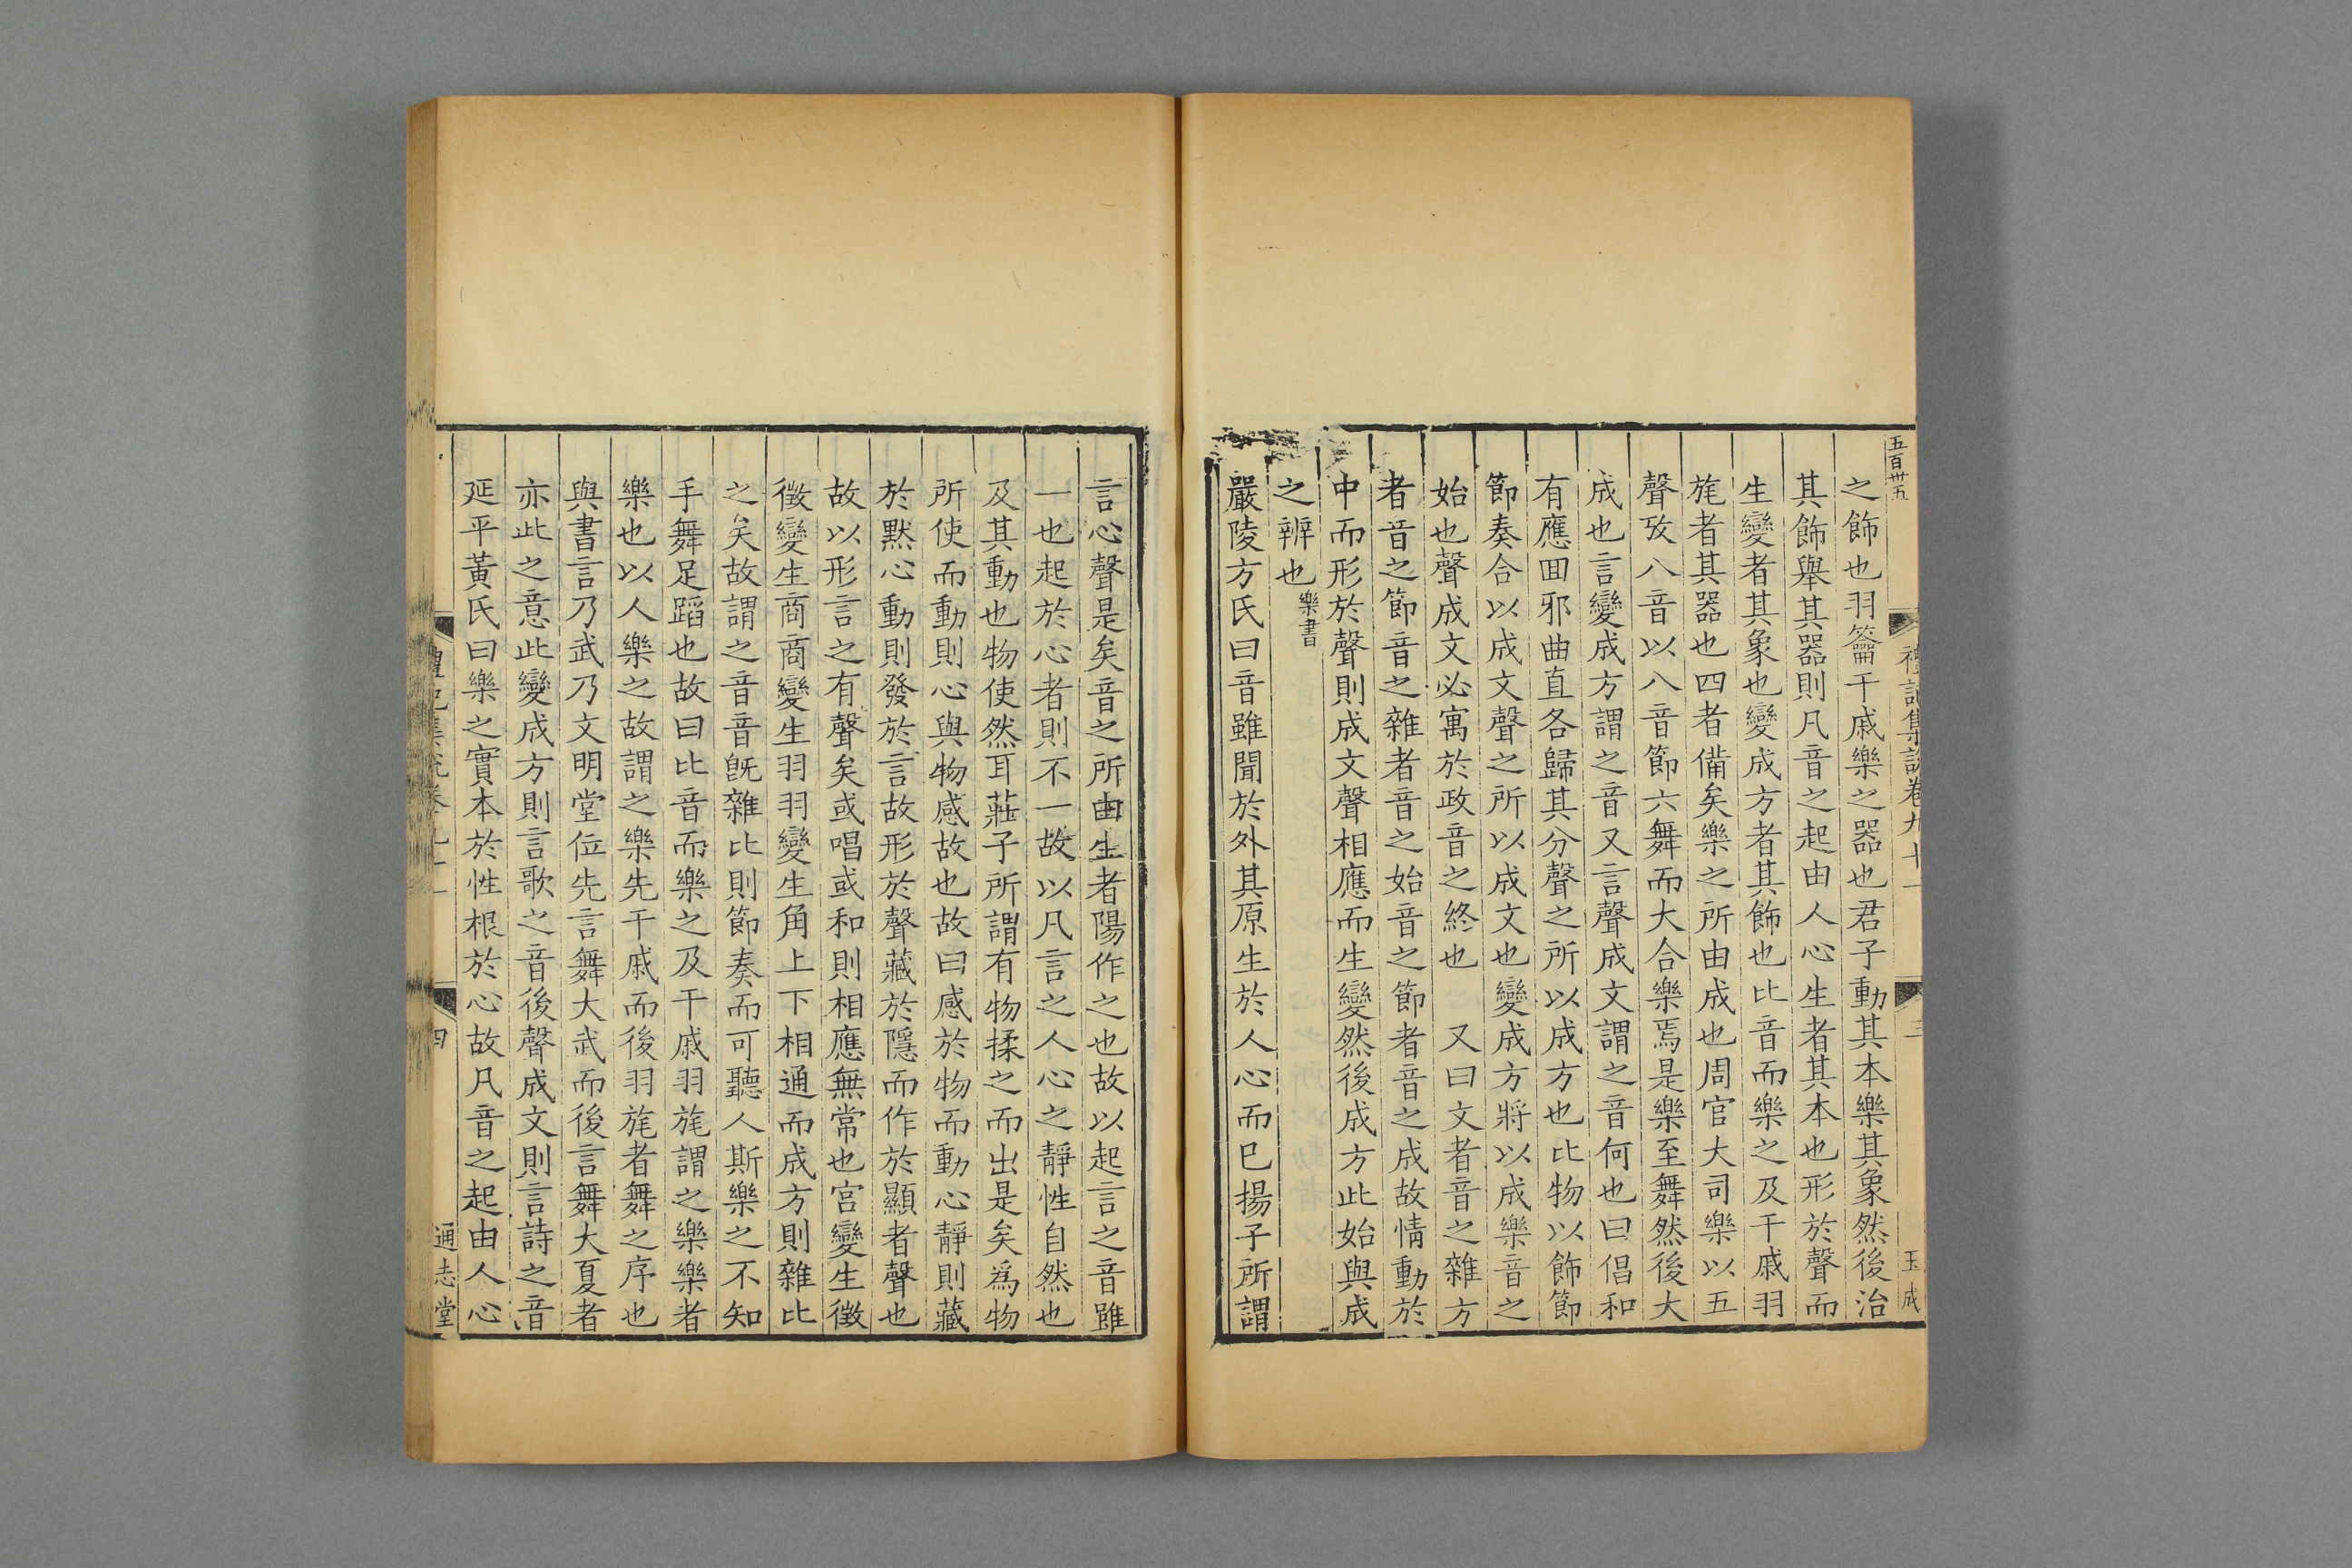 五百卅五
禮記集說卷九十一
三
玉成
之飾也羽籥干戚樂之器也君子動其本樂其象然後治
其飾舉其器則凡音之起由人心生者其本也形於聲而
生變者其象也變成方者其飾也比音而樂之及干戚羽
旄者其器也四者備矣樂之所由成也周官大司樂以五
聲攷八音以八音節六舞而大合樂焉是樂至舞然後大
成也言變成方謂之音又言聲成文謂之音何也曰倡和
有應回邪曲直各歸其分聲之所以成方也比物以飾節
節奏合以成文聲之所以成文也變成方將以成樂音之
始也聲成文必寓於政音之終也　又曰文者音之雜方
者音之節音之雜者音之始音之節者音之成故情動於
中而形於聲則成文聲相應而生變然後成方此始與成
之辨也樂書
嚴陵方氏曰音雖聞於外其原生於人心而已揚子所謂
言心聲是矣音之所由生者陽作之也故以起言之音雖
一也起於心者則不一故以凡言之人心之靜性自然也
及其動也物使然耳莊子所謂有物揉之而出是矣爲物
所使而動則心與物感故也故曰感於物而動心靜則藏
於黙心動則發於言故形於聲藏於隱而作於顯者聲也
故以形言之有聲矣或唱或和則相應無常也宮變生徵
徵變生商商變生羽羽變生角上下相通而成方則雜比
之矣故謂之音音旣雜比則節奏而可聽人斯樂之不知
手舞足蹈也故曰比音而樂之及干戚羽旄謂之樂樂者
樂也以人樂之故謂之樂先干戚而後羽旄者舞之序也
與書言乃武乃文明堂位先言舞大武而後言舞大夏者
亦此之意此變成方則言歌之音後聲成文則言詩之音
延平黃氏曰樂之實本於性根於心故凡音之起由人心
禮記集說卷九十一
四
通志堂